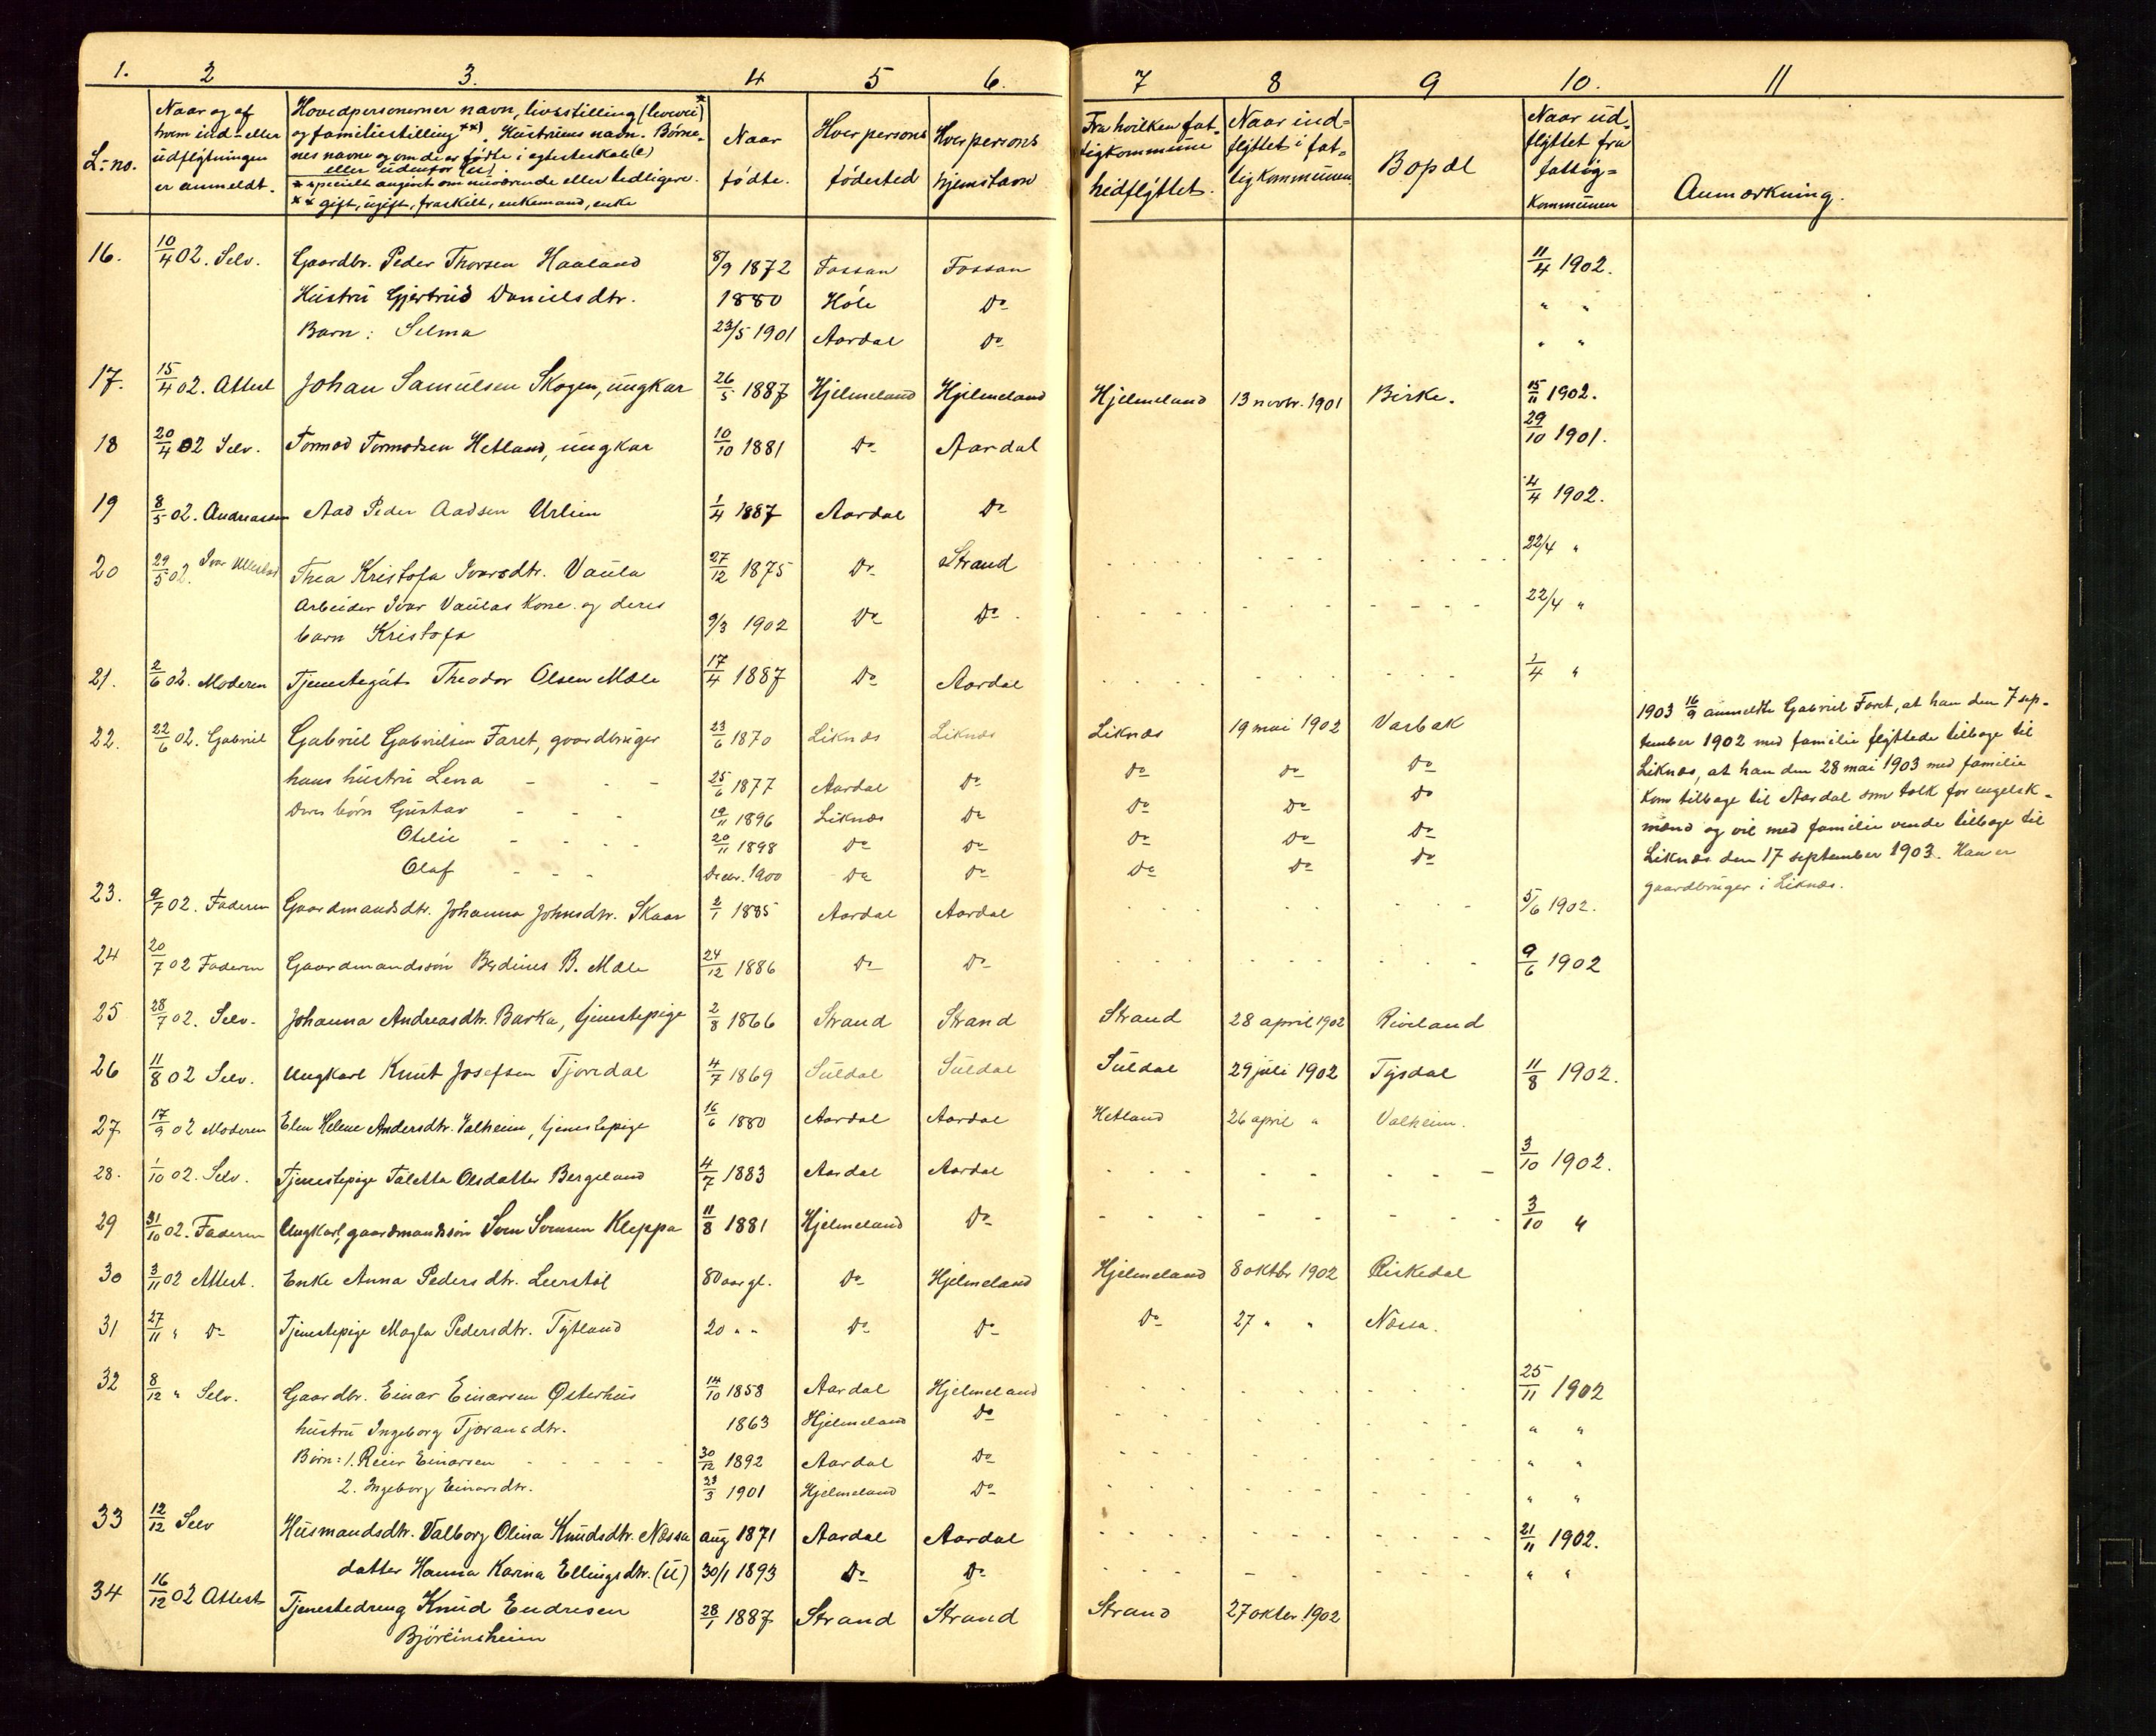 1. 2 3. 4 5 6. 7 8 9 10. 11
L-no. | Naar og af hvem ind- eller udflytningen er anmeldt. | Hovedpersonernes navn, livsstilling (levevei)* og familiestilling**). Hustruens navn. Børnenes navne og om de er fødte i egteskab (e) eller udenfor (u). | Naar fødte. | Hver persons fødested | Hver persons hjemstavn | Fra hvilken fattigkommune hidflyttet. | Naar indflyttet i fattigkommunen. | Bopæl | Naar udflyttet fra fattigkommunen | Anmærkning.
* specielt angivet om nuværende eller tidligere.
** gift, ugift, fraskilt, enkemand, enke
16. 10/4 02. Selv. Gaardbr. Peder Thorsen Haaland 8/9 1872 Fossan Fossan 11/4 1902.
Hustru Gjertrud Danielsdtr. 1880 Höle Do " "
Barn: Selma 23/5 1901 Aardal Do " "
17. 15/4 02. Attest Johan Samuelsen Skogen, ungkar 26/5 1887 Hjelmeland Hjelmeland Hjelmeland 13 novbr. 1901 Birke. 15/11 1902.
18 20/4 02 Selv. Tormod Tormodsen Hetland, ungkar 10/10 1881 Do Aardal 29/10 1901.
19 8/5 02. Andreassen Aad Peder Aadsen Urlien 1/4 1887 Aardal Do 4/4 1902.
20 29/5 02. Ivar Ullestad Thea Kristofa Ivarsdtr. Vaula 27/12 1875 Do Strand 22/4 "
Arbeider Ivar Vaulas Kone og deres
barn Kristofa 9/3 1902 Do Do 22/4 "
21. 2/6 02. Moderen Tjenestegut Theodor Olsen Mæle 17/4 1887 Do Aardal 1/4 "
22. 22/6 02. Gabriel Gabriel Gabrielsen Faret, gaardbruger 23/6 1870 Liknæs Liknæs Liknæs 19 mai 1902 Varbak
hans hustru Lena 25/6 1877 Aardal Do Do Do Do
Deres börn Gustav 19/11 1896 Liknæs Do Do Do Do
Otelie 20/11 1898 Do Do Do Do Do
Olaf Decbr. 1900 Do Do Do Do Do
1903 16/9 anmeldte Gabriel Faret, at han den 7 sep-
tember 1902 med familie flyttede tilbage til
Liknæs, at han den 28 mai 1903 med familie
kom tilbage til Aardal som tolk for engelsk-
mænd og vil med familie vende tilbage til
Liknæs den 17 september 1903. Han er
gaardbruger i Liknæs.
23. 9/7 02. Faderen Gaardmandsdtr. Johanna Johnsdtr. Skaar 2/1 1885 Aardal Aardal 5/6 1902.
24 20/7 02 Faderen Gaardmandssön Berdines B. Mæle 24/12 1886 Do Do 9/6 1902
25 28/7 02. Selv. Johanna Andreasdtr. Barka, tjenestepige 2/8 1866 Strand Strand Strand 28 april 1902 Riveland
26 11/8 02 Selv. Ungkarl Knut Josefsen Tjordal 4/7 1869 Suldal Suldal Suldal 29 juli 1902 Tysdal 11/8 1902.
27 17/9 02 Moderen Elen Helene Andersdtr. Valheim, tjenestepige 16/6 1880 Aardal Aardal Hetland 26 april " Valheim.
28. 1/10 02. Selv. Tjenestepige Taletta Olsdatter Bergeland 4/7 1883 Aardal Aardal 3/10 1902.
29 31/10 02. Faderen Ungkarl, gaardmandssön Sven Svensen Kleppa 11/8 1881 Hjelmeland Do 3/10 "
30 3/11 02 Attest. Enke Anna Pedersdtr. Leerstøl 80 aar gl. Do Hjelmeland Hjelmeland 8 oktbr 1902 Riskedal
31 27/11 " Do Tjenestepige Magla Pedersdtr. Tytland 20 " " Do Do Do 27 " " Næssa.
32 8/12 " Selv. Gaardbr. Einar Einarsen Østerhus 14/10 1858 Aardal Hjelmeland 25/11 1902
hustru Ingeborg Tjøransdtr. 1863 Hjelmeland Do " "
Børn: 1. Reier Einarsen 30/12 1892 Aardal Do " "
2. Ingeborg Einarsdtr. 23/3 1901 Hjelmeland Do " "
33 12/12 Selv Husmandsdtr. Valborg Olina Knudsdtr. Næssa aug 1871 Aardal Aardal 21/11 1902.
datter Hanna Karina Ellingsdtr. (u) 30/1 1893 Do Do " "
34 16/12 02 Attest Tjenestedreng Knud Endresen 28/1 1887 Strand Strand Strand 27 oktbr. 1902
Björeinsheim